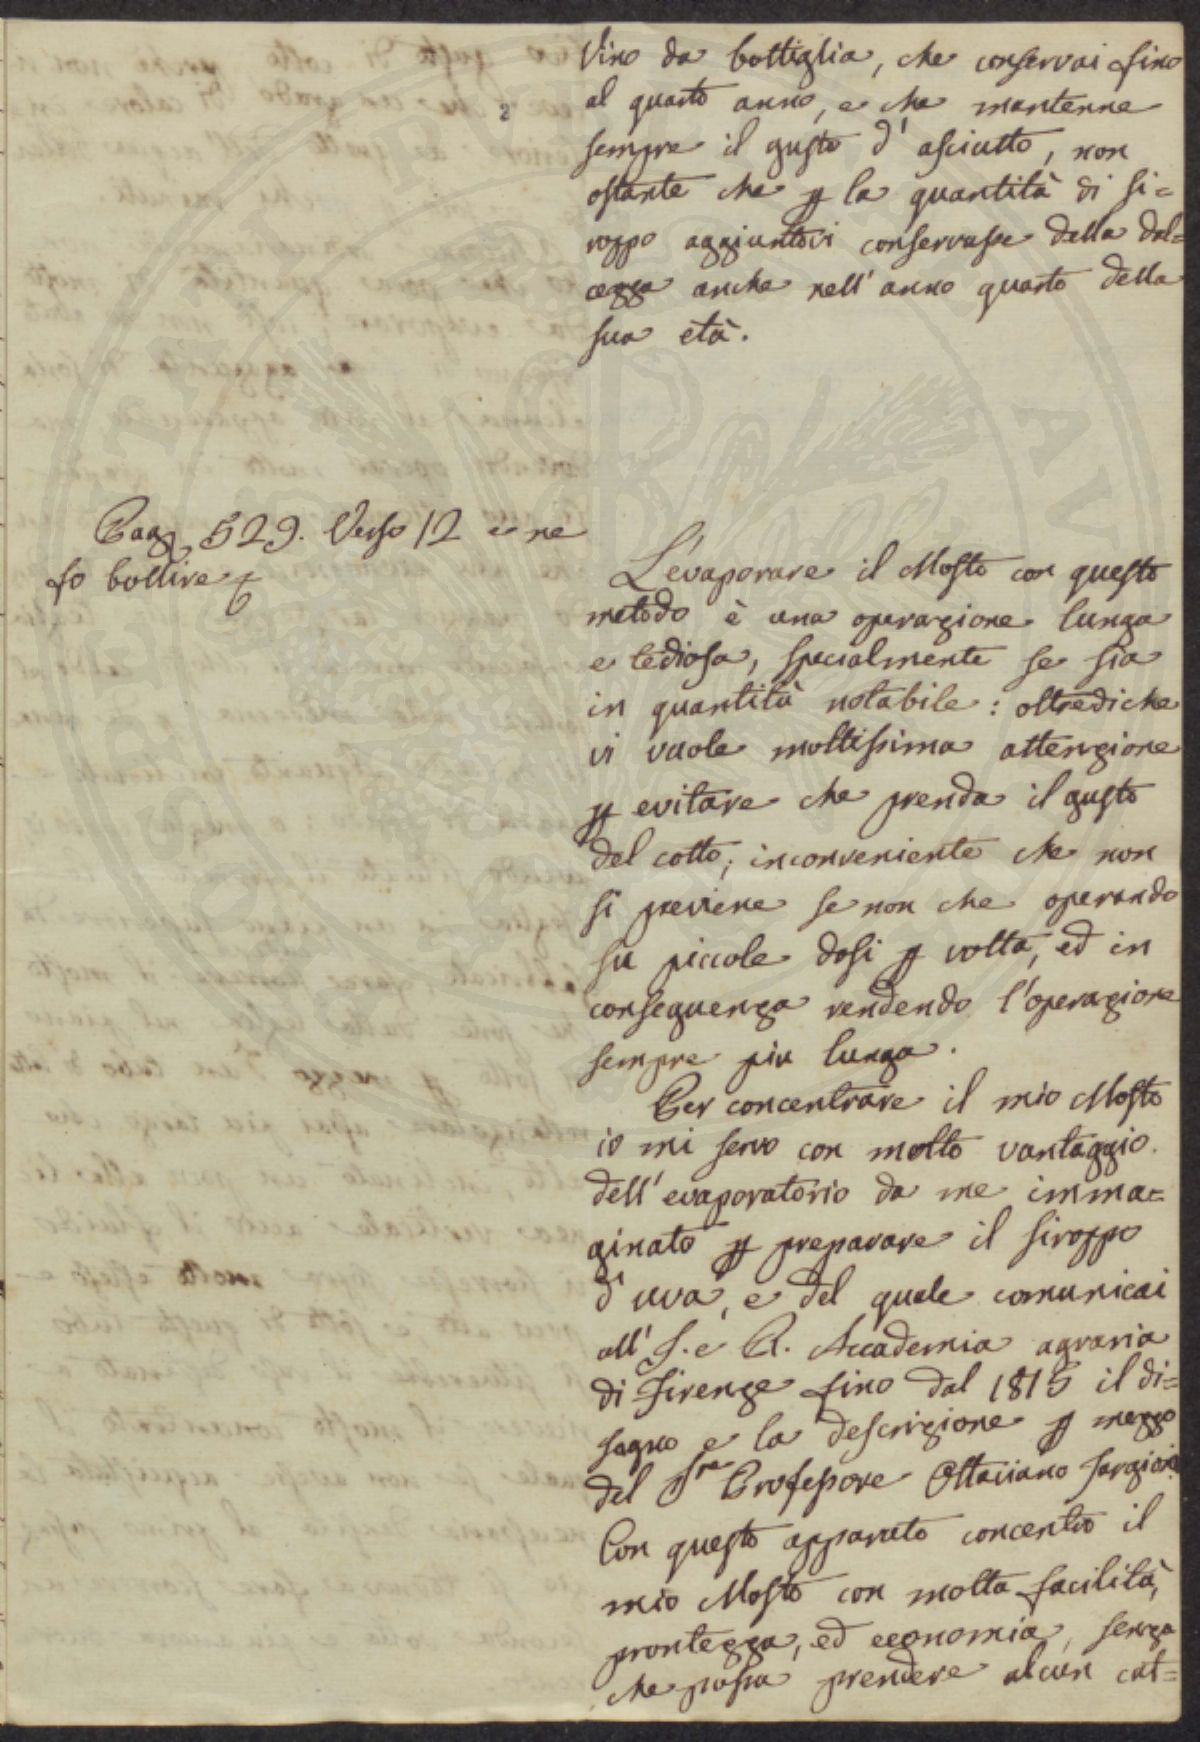 Vino da bottiglia, che conservai fino
al quarto anno, e che mantenne
sempre il gusto d'asciutto, non
ostante che p la quantità di si=
roppo aggiuntovi conservasse della dol=
cezza anche nell'anno quarto della
sua età.
2
Pag. 529. Verso 12 e ne
fo bollire &
L'evaporare il Mosto con questo
metodo è una operazione lunga
e tediosa, specialmente se sia
in quantità notabile: oltrediche
vi vuole moltissima attenzione
p evitare che prenda il gusto
del cotto; inconveniente che non
si previene se non che operando
su piccole dosi p volta, ed in
conseguenza rendendo l'operazione
sempre piu lunga.
Per concentrare il mio Mosto
io mi servo con molto vantaggio
dell'evaporatorio da me imma=
ginato p preparare il siroppo
d'uva, e del quale comunicai
all'I. e R. Accademia agraria
di Firenze fino dal 1815 il di=
segno e la descrizione p mezzo
del Sre Professore Ottaviano Targioni.
Con questo apparato concentro il
mio Mosto con molta facilità,
prontezza, ed economia, senza
che possa prendere alcun cat=